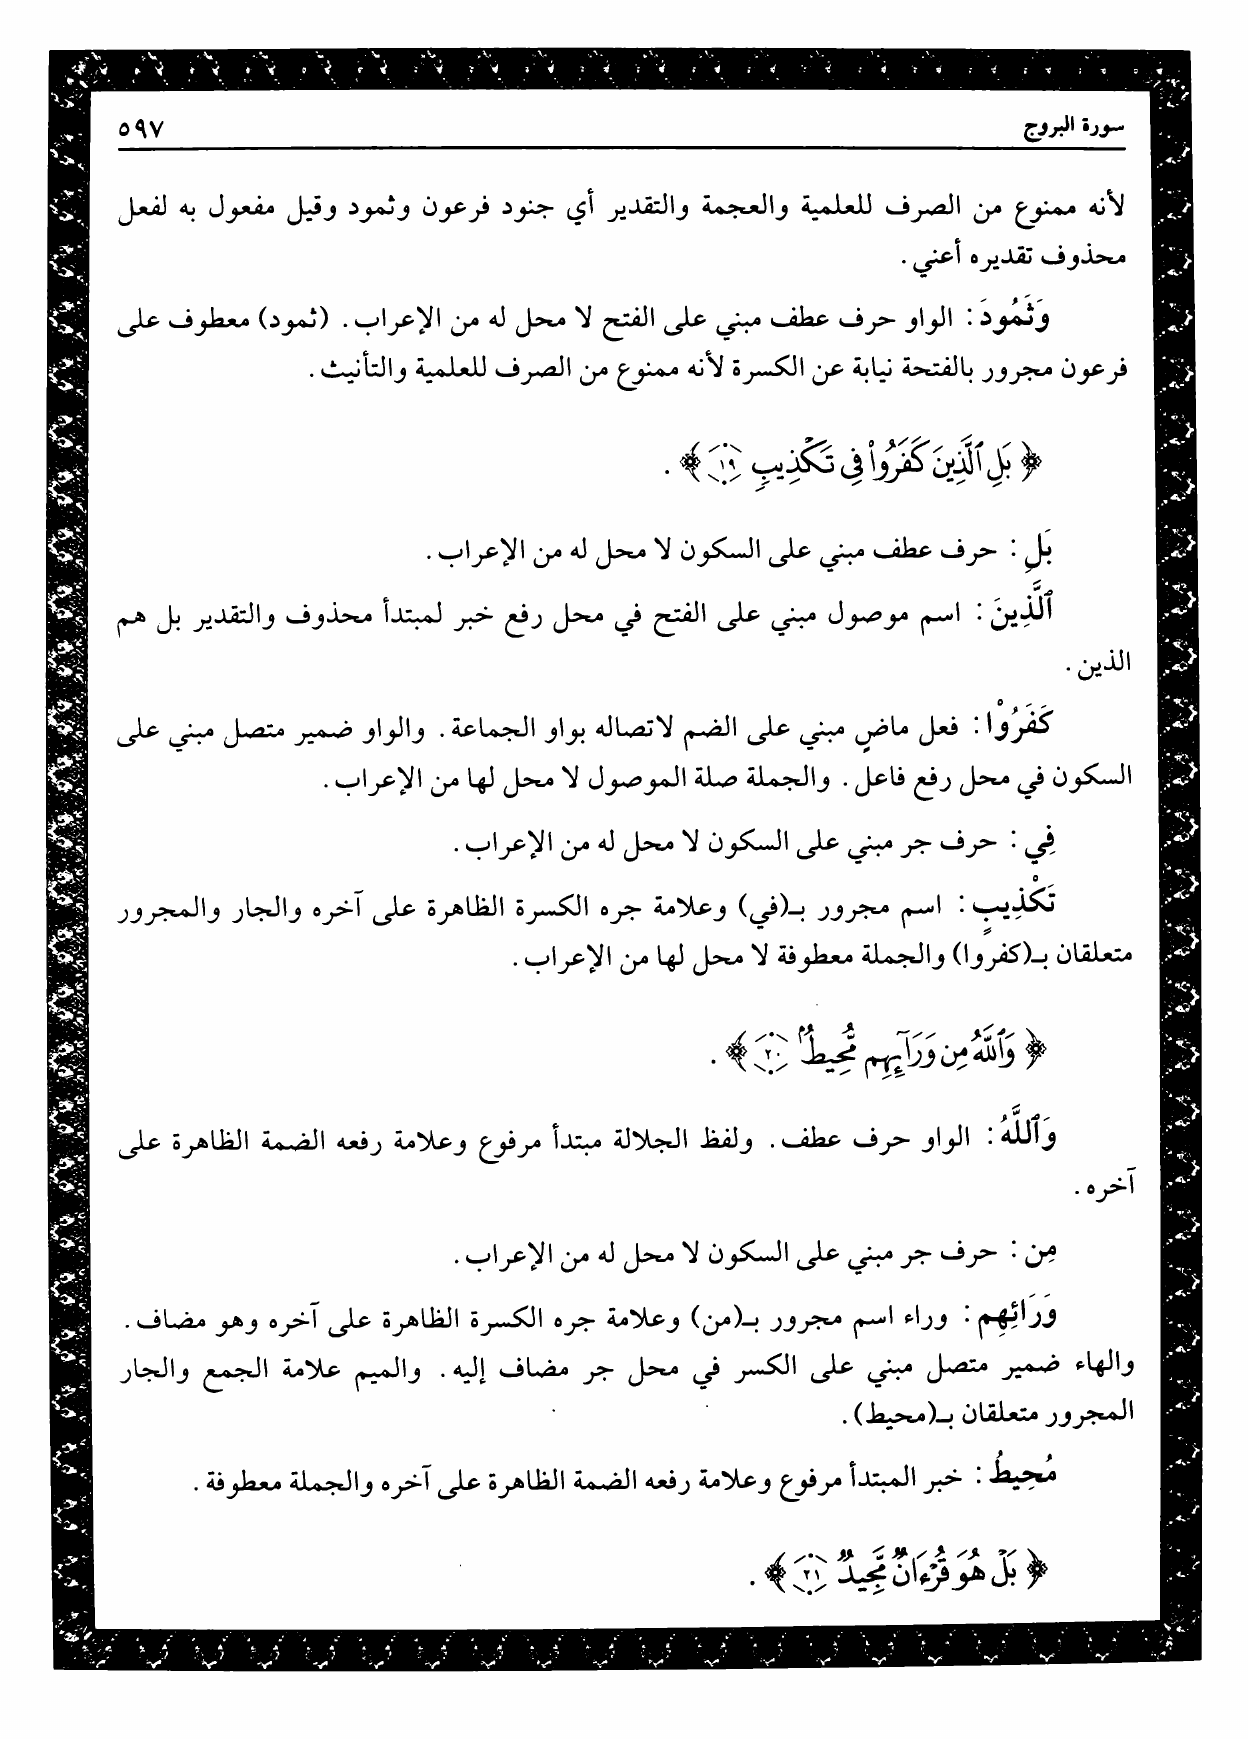 سورة البروج ٥٩٧
لأنه ممنوع من الصرف للعلمية والعجمة والتقدير أي جنود فرعون وثمود وقيل مفعول به لفعل
محذوف تقديره أعني .
وَثَمُودَ : الواو حرف عطف مبني على الفتح لا محل له من الإعراب . (ثمود) معطوف على
فرعون مجرور بالفتحة نيابة عن الكسرة لأنه ممنوع من الصرف للعلمية والتأنيث .
﴿ بَلِ ٱلَّذِينَ كَفَرُواْ فِى تَكْذِيبٍ ١٩ ﴾ .
بَلِ : حرف عطف مبني على السكون لا محل له من الإعراب .
ٱلَّذِينَ : اسم موصول مبني على الفتح في محل رفع خبر لمبتدأ محذوف والتقدير بل هم
الذين .
كَفَرُواْ : فعل ماضٍ مبني على الضم لاتصاله بواو الجماعة . والواو ضمير متصل مبني على
السكون في محل رفع فاعل . والجملة صلة الموصول لا محل لها من الإعراب .
فِي : حرف جر مبني على السكون لا محل له من الإعراب .
تَكْذِيبٍ : اسم مجرور بـ(في) وعلامة جره الكسرة الظاهرة على آخره والجار والمجرور
متعلقان بـ(كفروا) والجملة معطوفة لا محل لها من الإعراب .
﴿ وَٱللَّهُ مِن وَرَآئِهِم مُّحِيطٌۢ ٢٠ ﴾ .
وَٱللَّهُ : الواو حرف عطف . ولفظ الجلالة مبتدأ مرفوع وعلامة رفعه الضمة الظاهرة على
آخره .
مِن : حرف جر مبني على السكون لا محل له من الإعراب .
وَرَائِهِم : وراء اسم مجرور بـ(من) وعلامة جره الكسرة الظاهرة على آخره وهو مضاف .
والهاء ضمير متصل مبني على الكسر في محل جر مضاف إليه . والميم علامة الجمع والجار
المجرور متعلقان بـ(محيط) .
مُحِيطُ : خبر المبتدأ مرفوع وعلامة رفعه الضمة الظاهرة على آخره والجملة معطوفة .
﴿ بَلْ هُوَ قُرْءَانٌ مَّجِيدٌ ٢١ ﴾ .